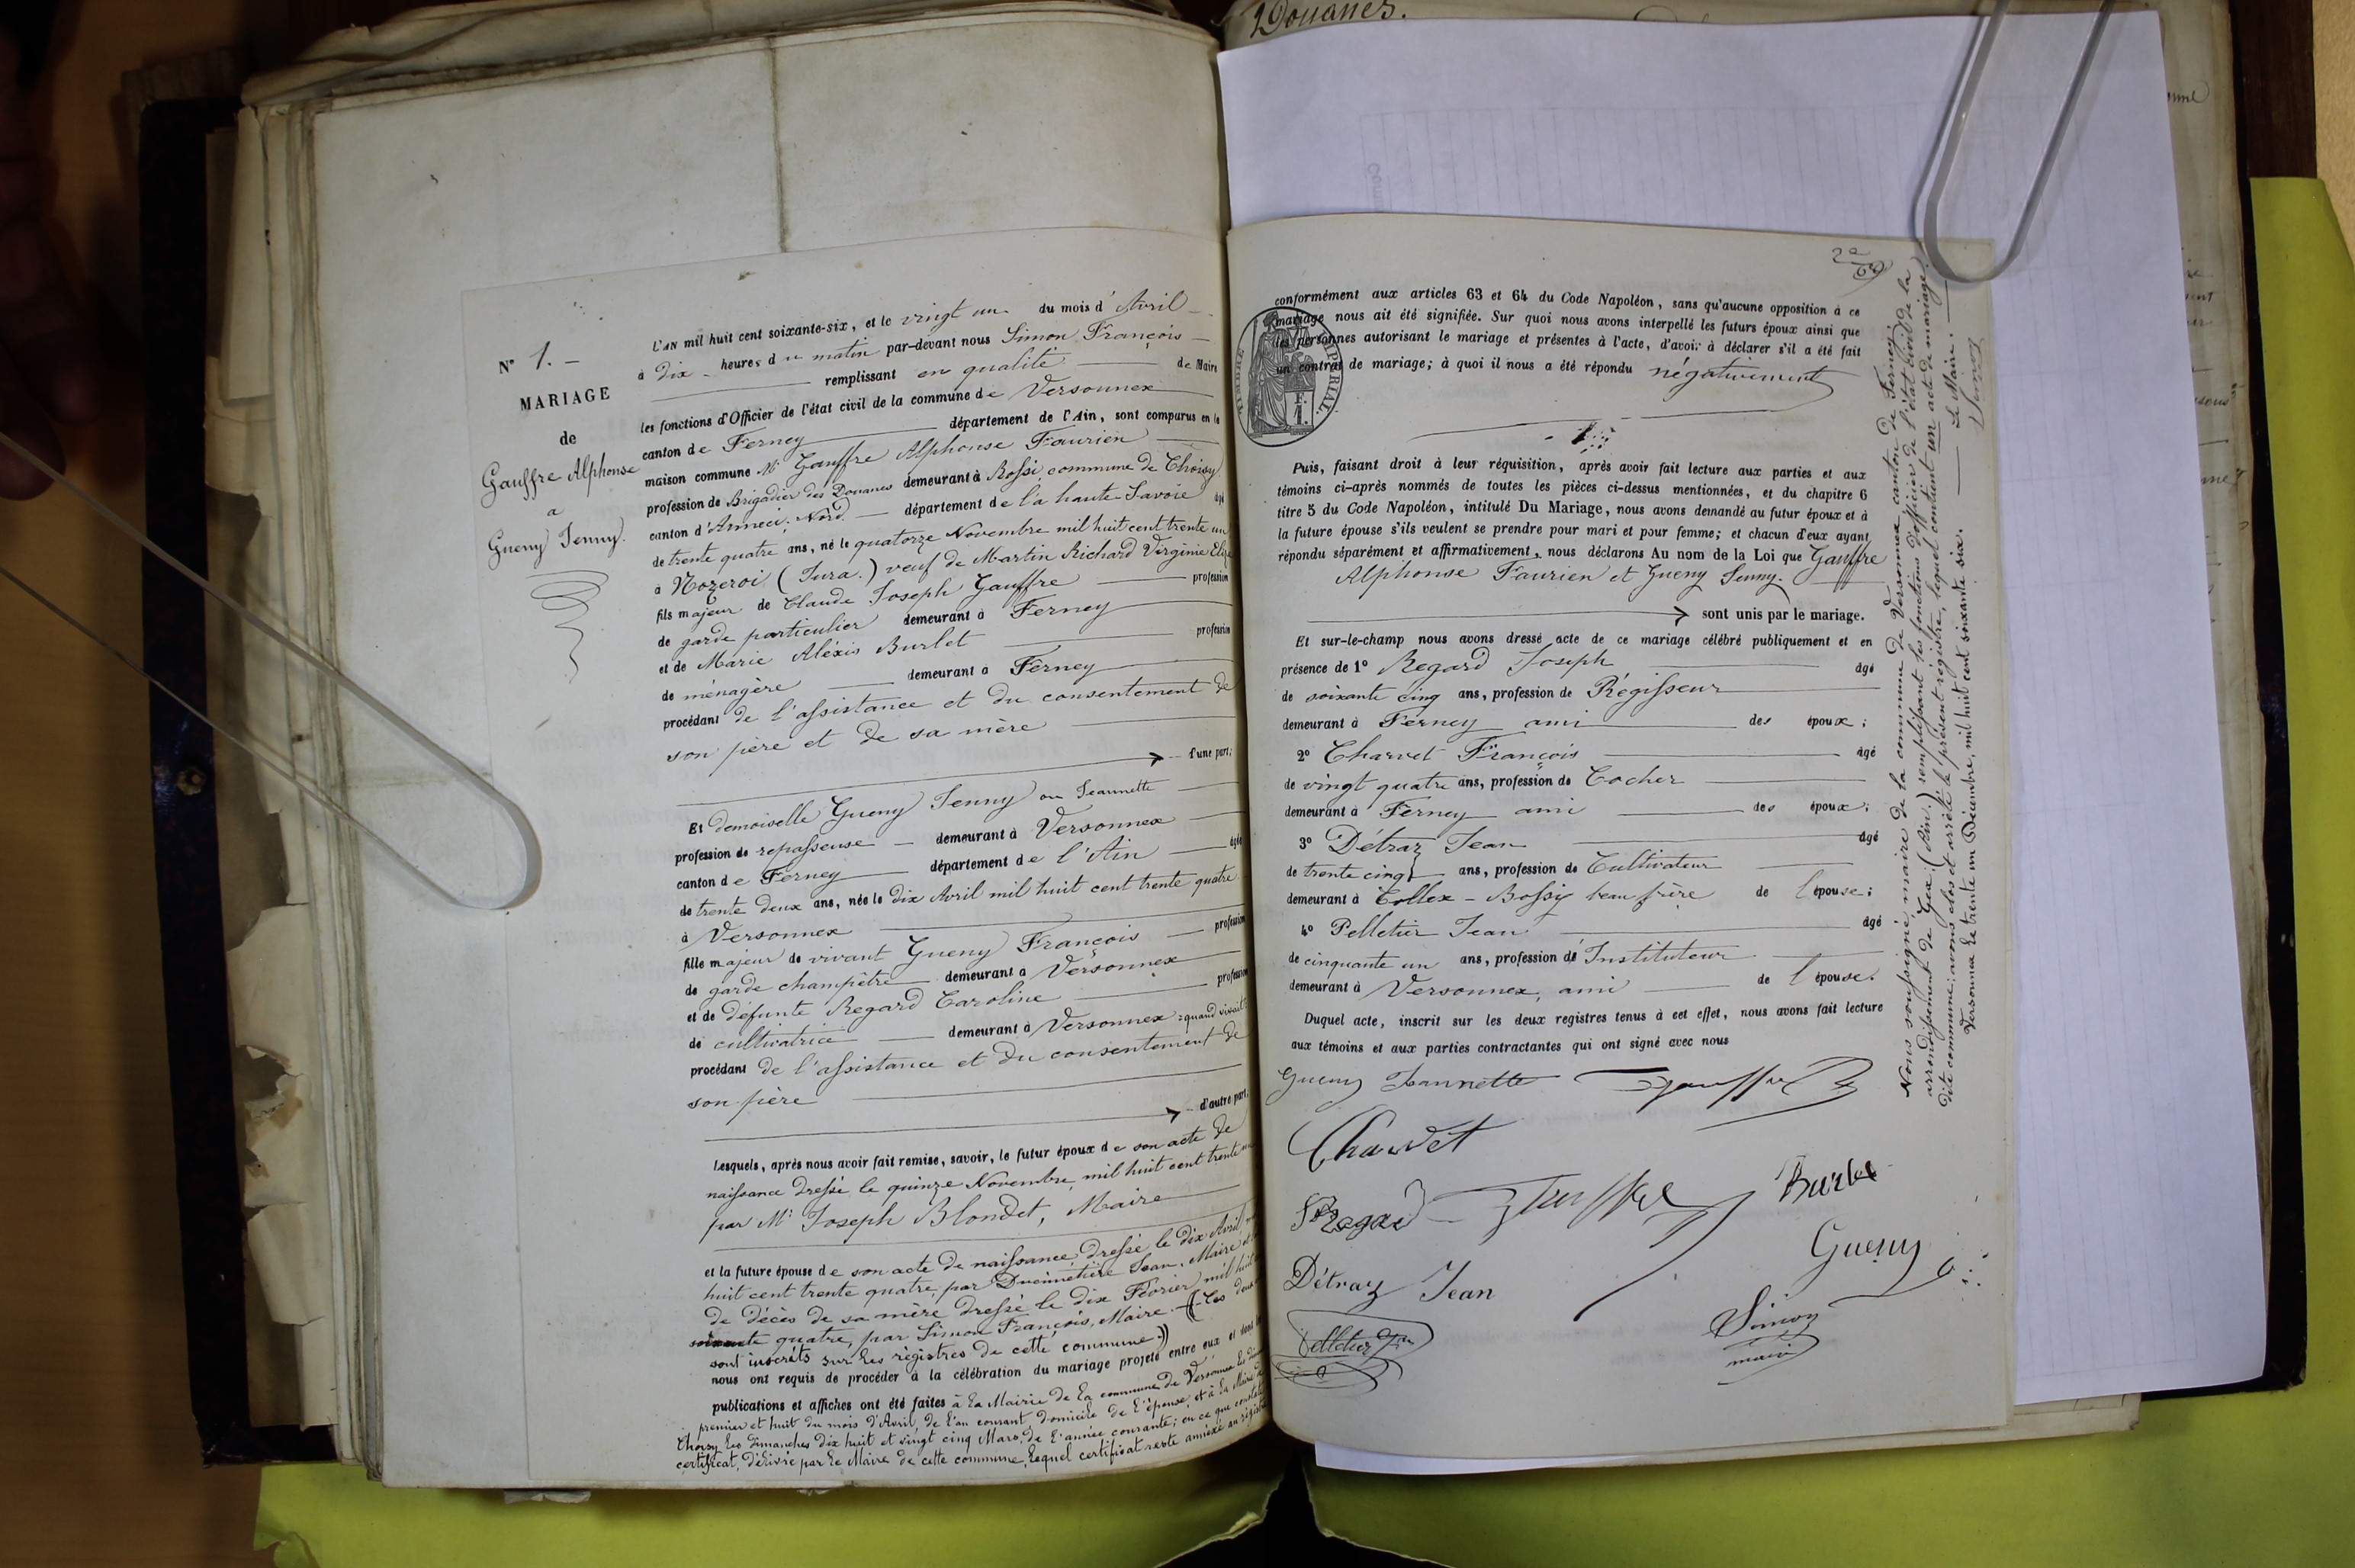 Douanes.
N° 1. -
MARIAGE
de
Gauffre Alphonse
a
Gueny Jenny.
L'AN mil huit cent soixante-six, et le vingt un du mois d'Avril
à dix heures du matin par-devant nous Simon François
remplissant en qualité de Maire
les fonctions d'Officier de l'état civil de la commune de Versonnex
canton de Ferney département de l'Ain, sont comparus en la
maison commune Mr Gauffre Alphonse Faurien
profession de Brigadier des Douanes demeurant à Bossi, commune de Choisy
canton d'Anneci-Nord département de la haute-Savoie âgé
de trente quatre ans, né le quatorze Novembre mil huit cent trente un
à Nozeroi (Jura.) veuf de Martin Richard Virginie Elize
fils majeur de Claude Joseph Gauffre profession
de garde particulier demeurant à Ferney
et de Marie Aléxis Burlet profession
de ménagère demeurant à Ferney
procédant de l'assistance et du consentement de
son père et de sa mère
d'une part;
Et demoiselle Gueny Jenny ou Jeannette
profession de repasseuse demeurant à Versonnex
canton de Ferney département de l'Ain âgée
de trente deux ans, née le dix Avril mil huit cent trente quatre
à Versonnex
fille majeur de vivant Gueny François profession
de garde champêtre demeurant à Versonnex
et de défunte Regard Caroline profession
de cultivatrice demeurant à Versonnex quand vivait
procédant de l'assistance et du consentement de
son père
d'autre part.
Lesquels, après nous avoir fait remise, savoir, le futur époux de son acte de
naissance dressé le quinze Novembre mil huit cent trente un
par Mr Joseph Blondet, Maire
et la future épouse de son acte de naissance, dressé le dix Avril
huit cent trente quatre, par Jean, Maire
de décès de sa mère dressé le dix Février mil huit
soixante quatre, par Simon François, Maire. (Les deux
sont inscrits sur les régistres de cette commune.)
nous ont requis de procéder à la célébration du mariage projeté entre eux et dont
publications et affiches ont été faites à la Mairie de la commune de Versonnex les
premier et huit du mois d'Avril, de l'an courant, domicile de l'épouse, et à la Mairie
Choisy les dimanches dix huit et vingt cinq Mars, de l'année courante; en ce que constate
certificat, délivré par le Maire de cette commune, lequel certificat reste annéxé au régistre
conformément aux articles 63 et 64 du Code Napoléon, sans qu'aucune opposition à ce
mariage nous ait été signifiée. Sur quoi nous avons interpellé les futurs époux ainsi que
les personnes autorisant le mariage et présentes à l'acte, d'avoir à déclarer s'il a été fait
un contrat de mariage; à quoi il nous a été répondu négativement
TIMBRE IMPÉRIAL.
F. 1.
Puis, faisant droit à leur réquisition, après avoir fait lecture aux parties et aux
témoins ci-après nommés de toutes les pièces ci-dessus mentionnées, et du chapitre 6
titre 5 du Code Napoléon, intitulé Du Mariage, nous avons demandé au futur époux et à
la future épouse s'ils veulent se prendre pour mari et pour femme; et chacun d'eux ayant
répondu séparément et affirmativement, nous déclarons Au nom de la Loi que Gauffre
Alphonse Faurien et Gueny Jenny.
sont unis par le mariage.
Et sur-le-champ nous avons dressé acte de ce mariage célébré publiquement et en
présence de 1° Regard Joseph âgé
de soixante cinq ans, profession de Régisseur
demeurant à Ferney ami des époux;
2° Charvet François âgé
de vingt quatre ans, profession de Cocher
demeurant à Ferney ami des époux;
3° Détraz Jean âgé
de trente cinq ans, profession de Cultivateur
demeurant à Collex-Bossy beau frère de l'épouse;
4° Pelletier Jean âgé
de cinquante un ans, profession de Instituteur
demeurant à Versonnex, ami de l'épouse.
Duquel acte, inscrit sur les deux registres tenus à cet effet, nous avons fait lecture
aux témoins et aux parties contractantes qui ont signé avec nous
Gueny Jeannette Gauffre
Charvet
Regard Gauffre Burlet
Gueny
Détraz Jean
Pelletier Jn
Simon
maire
Nous soussigné, maire de la commune de Versonnex, canton de Ferney,
arrondissement de Gex, (Ain,) remplissant les fonctions d'officier de l'état civil de la
dite commune; avons clos et arrêté le présent registre, lequel contient un acte de mariage.
Versonnex le trente un Décembre, mil huit cent soixante six.
Le Maire:
Simon